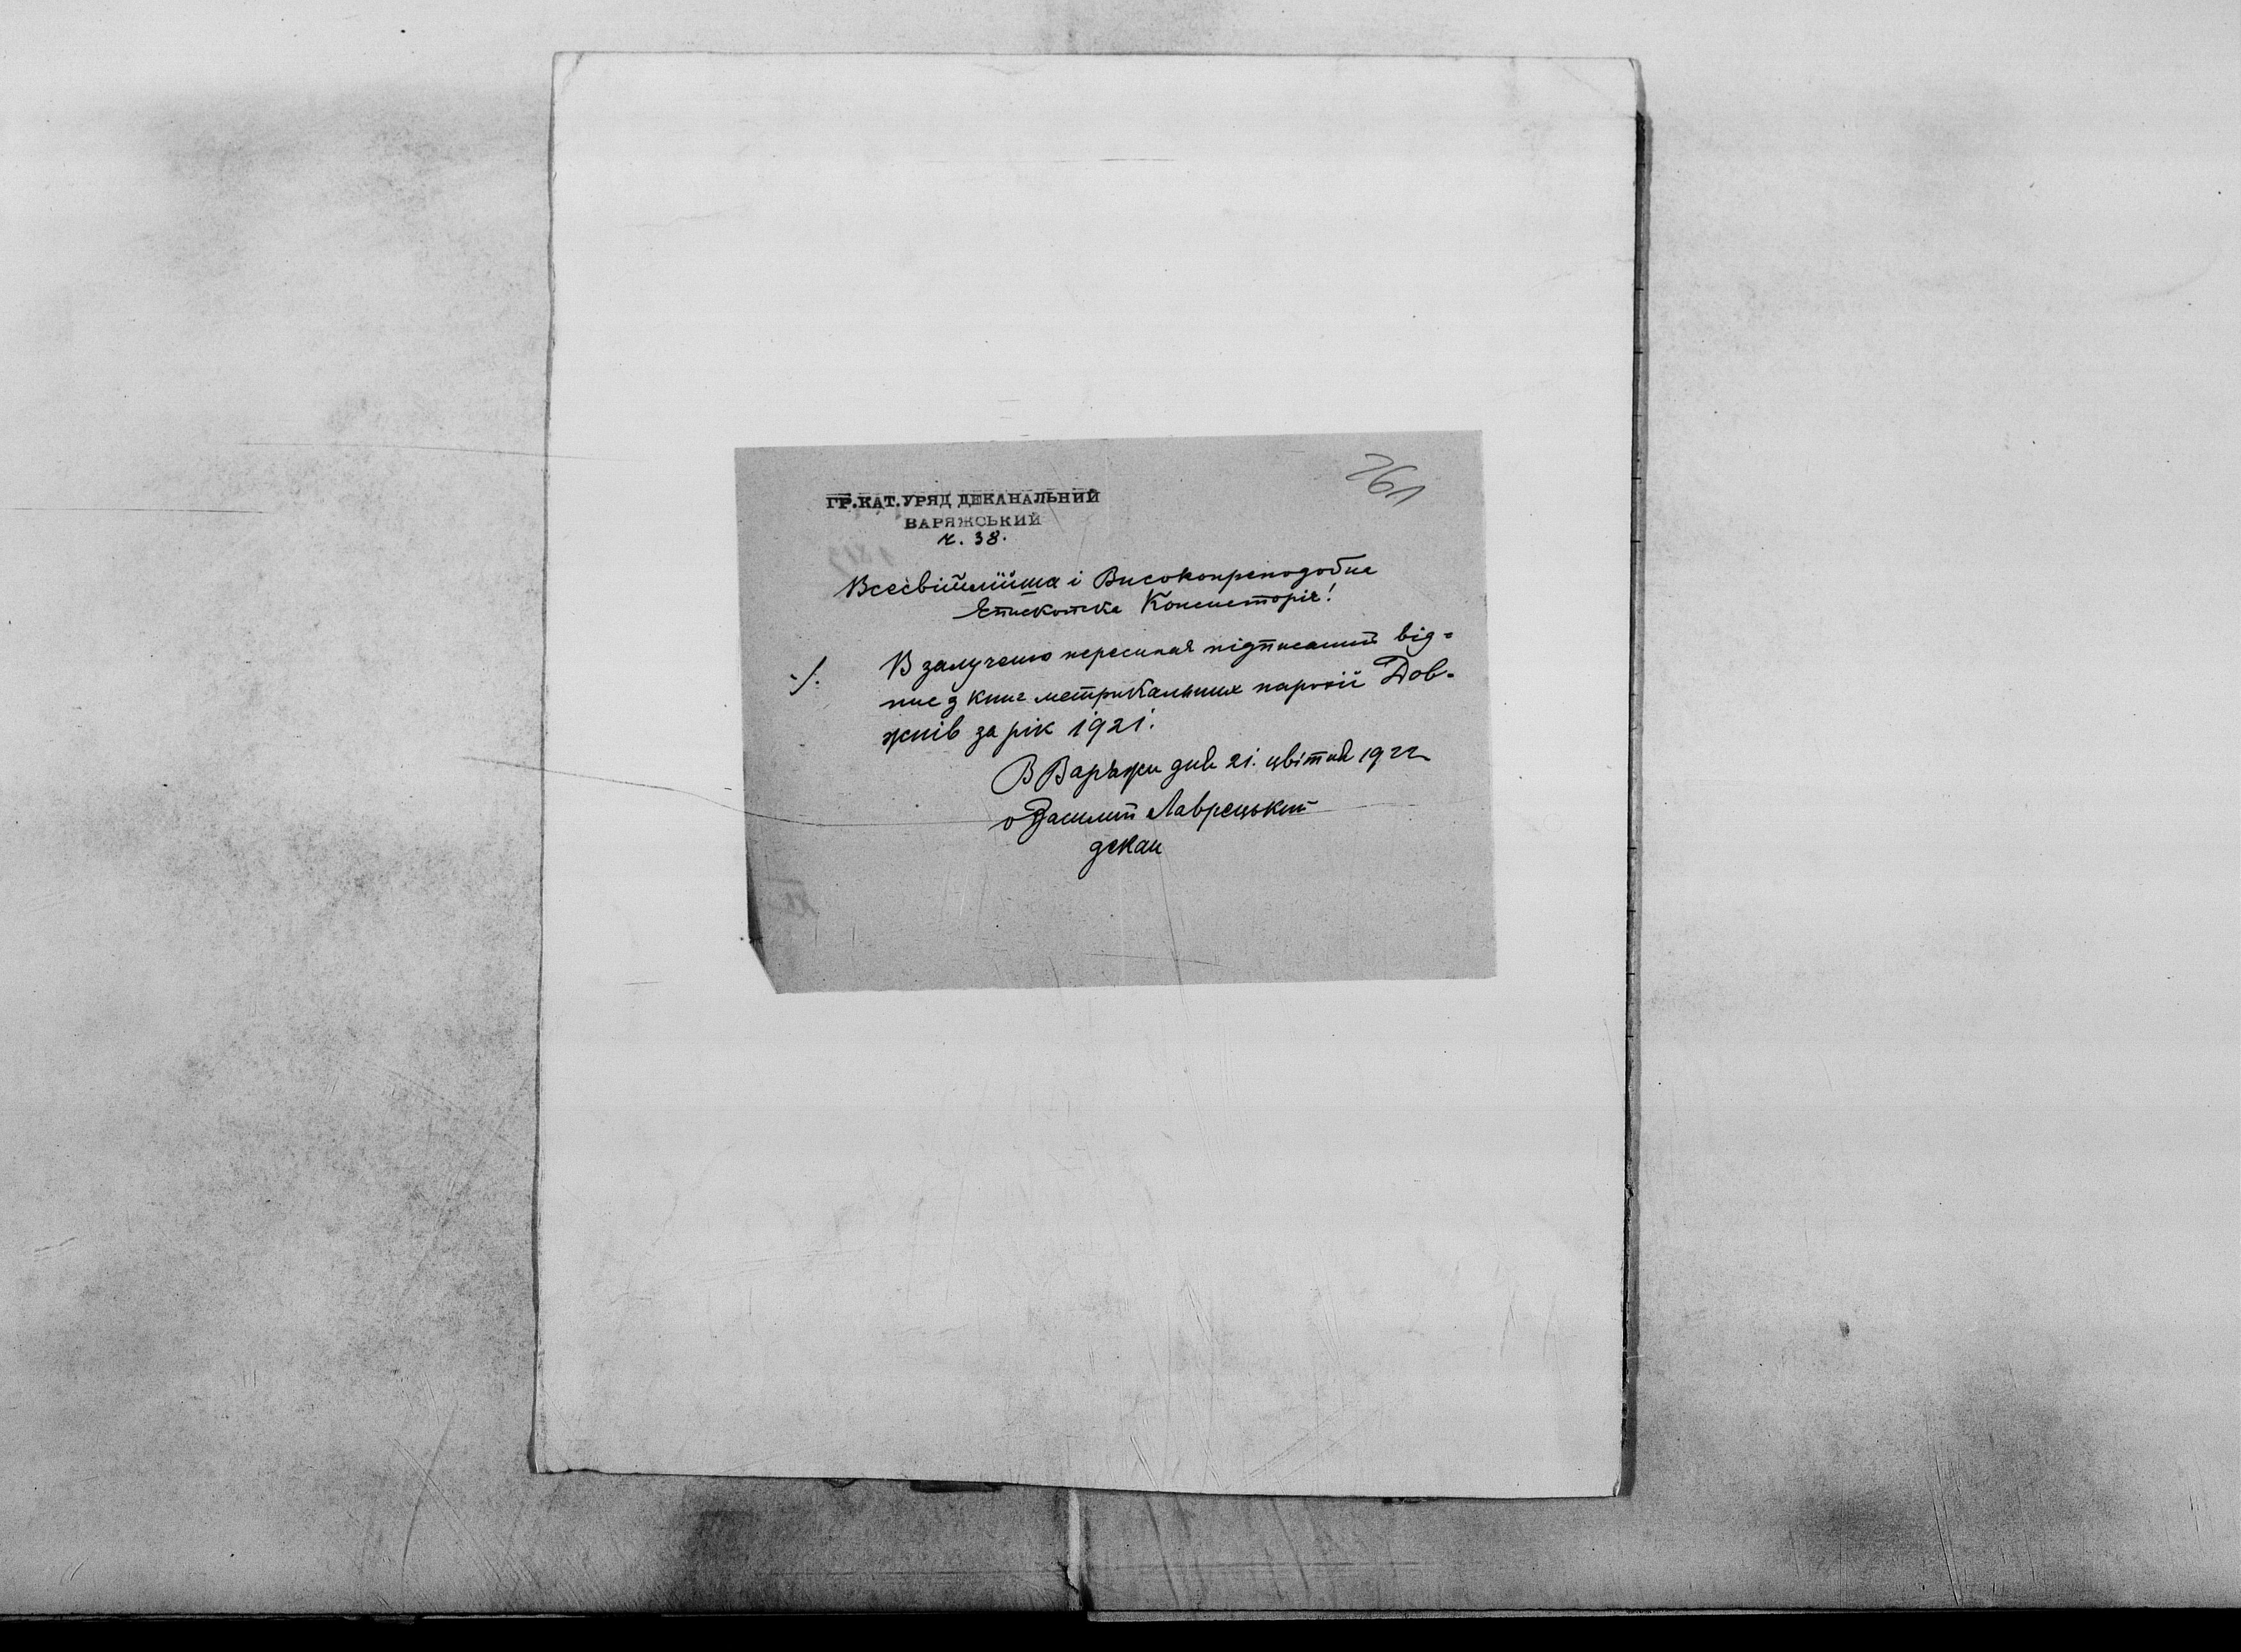 261
ГР.КАТ.УРЯД ДЕКАНАЛЬНИЙ
ВАРЯЖСЬКИЙ
ч. 38.
Всесвітлійша і Високопреподобна
Епископска Консисторіє!
./. В залученю пересилає підписаний від=
пис з книг метрикальних парохії Дов-
жнів за рік 1921.
В Варяжи дня 21. цвітня 1922
о Василий Лаврецький
декан